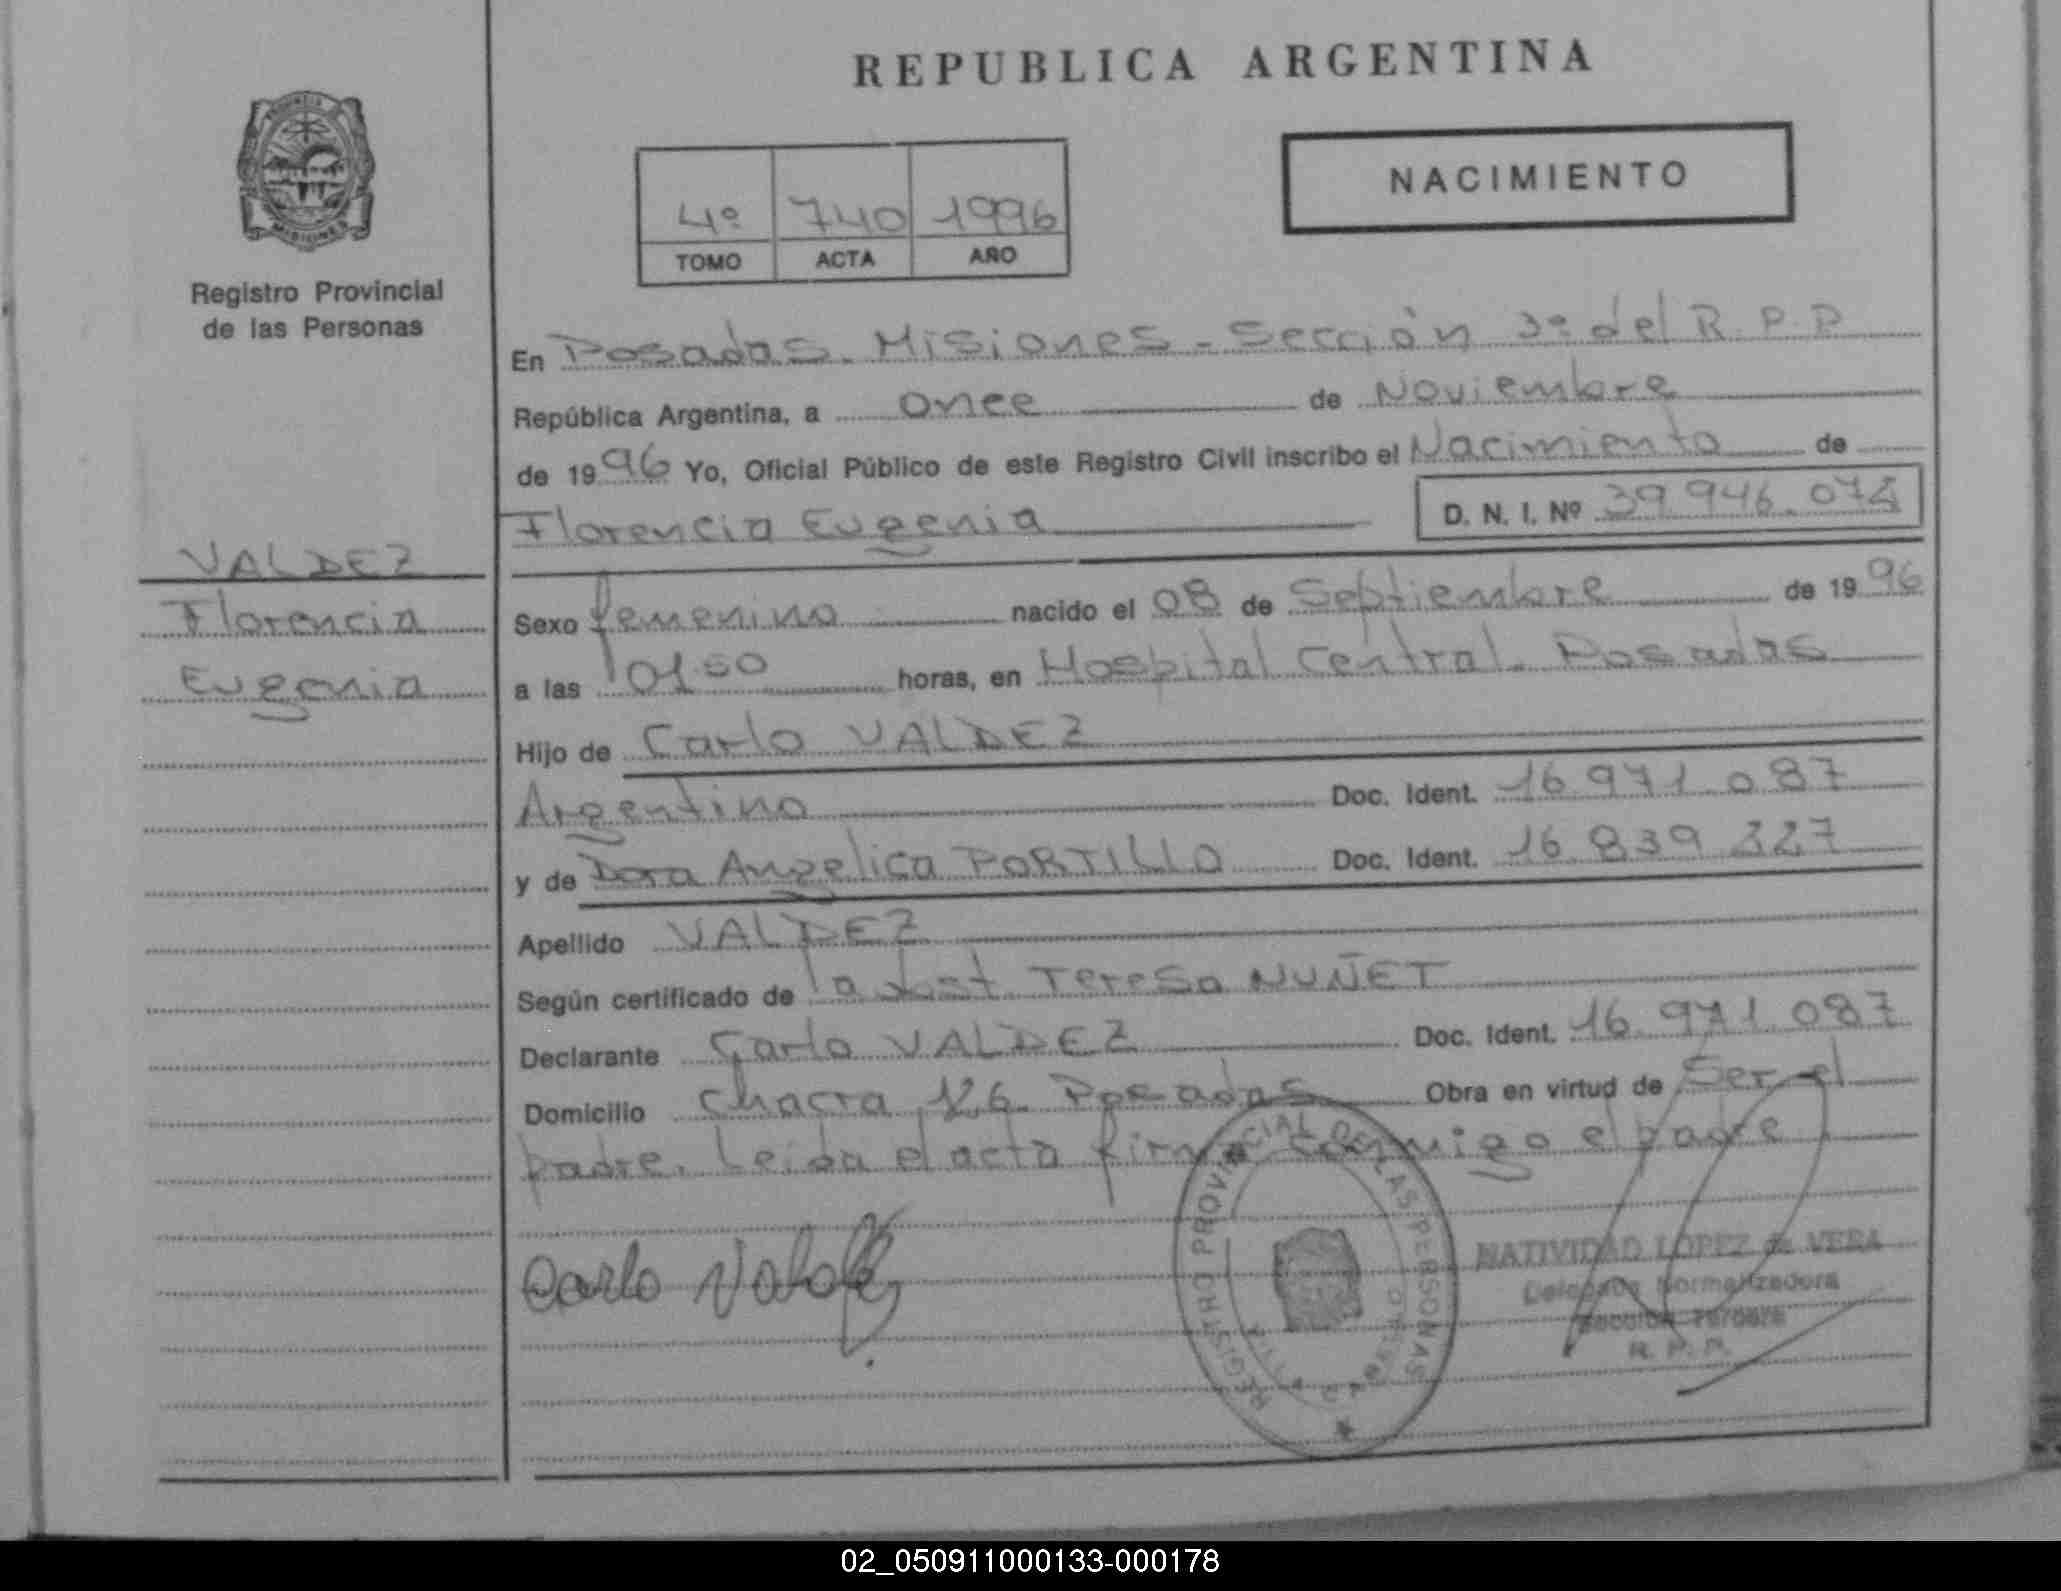 REPUBLICA ARGENTINA
PROVINCIA
MISIONES
Registro Provincial
de las Personas
4º 740 1996
TOMO ACTA AÑO
NACIMIENTO
En Posadas - Misiones - Sección 3º del R. P. P
República Argentina, a once de Noviembre
de 1996 Yo, Oficial Público de este Registro Civil inscribo el Nacimiento de
Florencia Eugenia D. N. I. Nº 39.946.074
VALDEZ
Florencia
Eugenia
Sexo femenino nacido el 08 de Septiembre de 1996
a las 01 50 horas, en Hospital Central - Posadas
Hijo de Carlo VALDEZ
Argentino Doc. Ident. 16.971.087
y de Dora Angelica PORTILLO Doc. Ident. 16.839.227
Apellido VALDEZ
Según certificado de la obst. Teresa NUÑET
Declarante Carlo VALDEZ Doc. Ident. 16.971.087
Domicilio Chacra 126 Posadas Obra en virtud de Ser el
padre. Leída el acta firma conmigo el padre
Carlo Valdez
REGISTRO PROVINCIAL DE LAS PERSONAS
NATIVIDAD LOPEZ de VERA
Delegada Normalizadora
Sección Tercera
R. P. P.
02_050911000133-000178